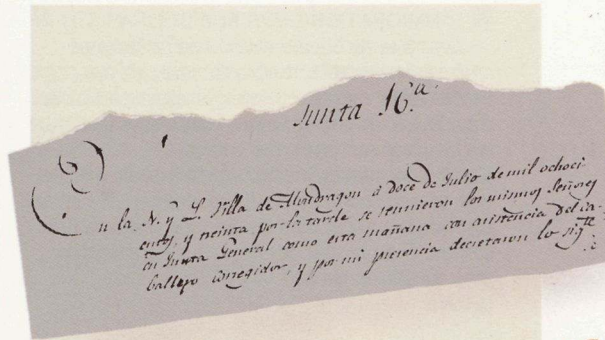 Junta 16.ª
En la N. y L. Villa de Mondragon á doce de Julio de mil ochoci-
entos, y treinta por la tarde se reunieron los mismos Señores
en Junta General como esta mañana con asistencia del ca-
ballero corregidor, y por mi presencia decretaron lo sig.te